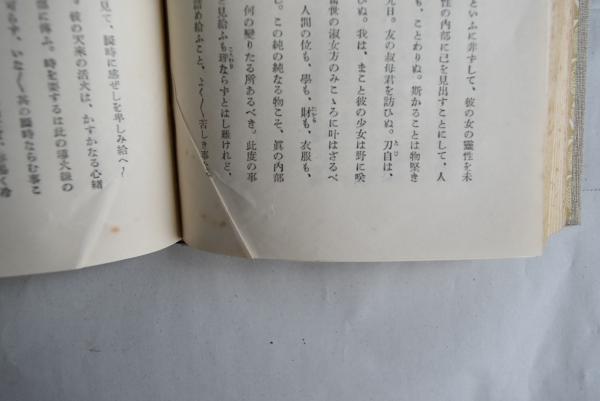 といふに非ずして、彼の女の靈性を未
性の内部に己を見出すことにして、人
も、ことわりぬ。斯かることは物堅き
元日。友の叔母君を訪ひぬ。刀自は、
ひぬ。我は、まこと彼の少女は野に咲
當世の淑女方のみこゝろに叶はざるべ
人間の位も、學も、財も、衣服も、
し。この純の純なる物こそ、眞の内部
何の變りたる所あるべき。此度の事
と見給ふも理ならずとはし難けれど、
詰め給ふこと、よく〳〵苦しき事
見て、瞬時に感ぜしを卑しみ給へ
る。彼の天來の活火は、かすかなる心緒
部に傳ふ。時を要するは此の導火線の
らず、いな〳〵其の瞬時ならむ事こ